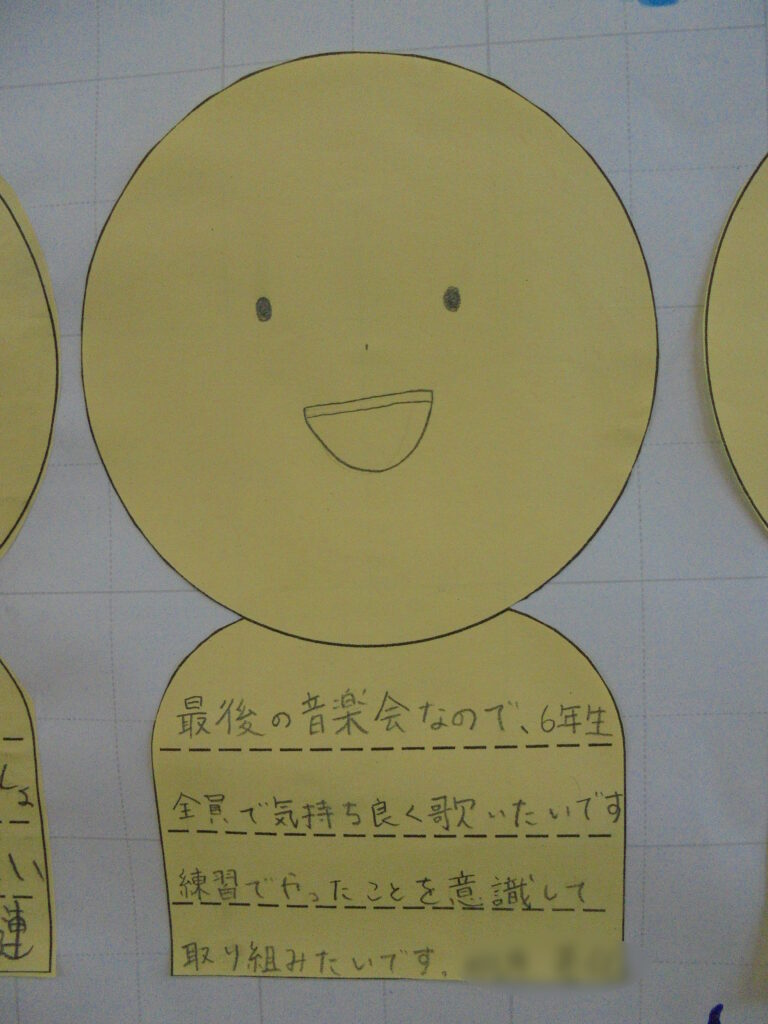 最後の音楽会なので、6年生
全員で気持ち良く歌いたいです
練習でやったことを意識して
取り組みたいです。
しょ
い
連